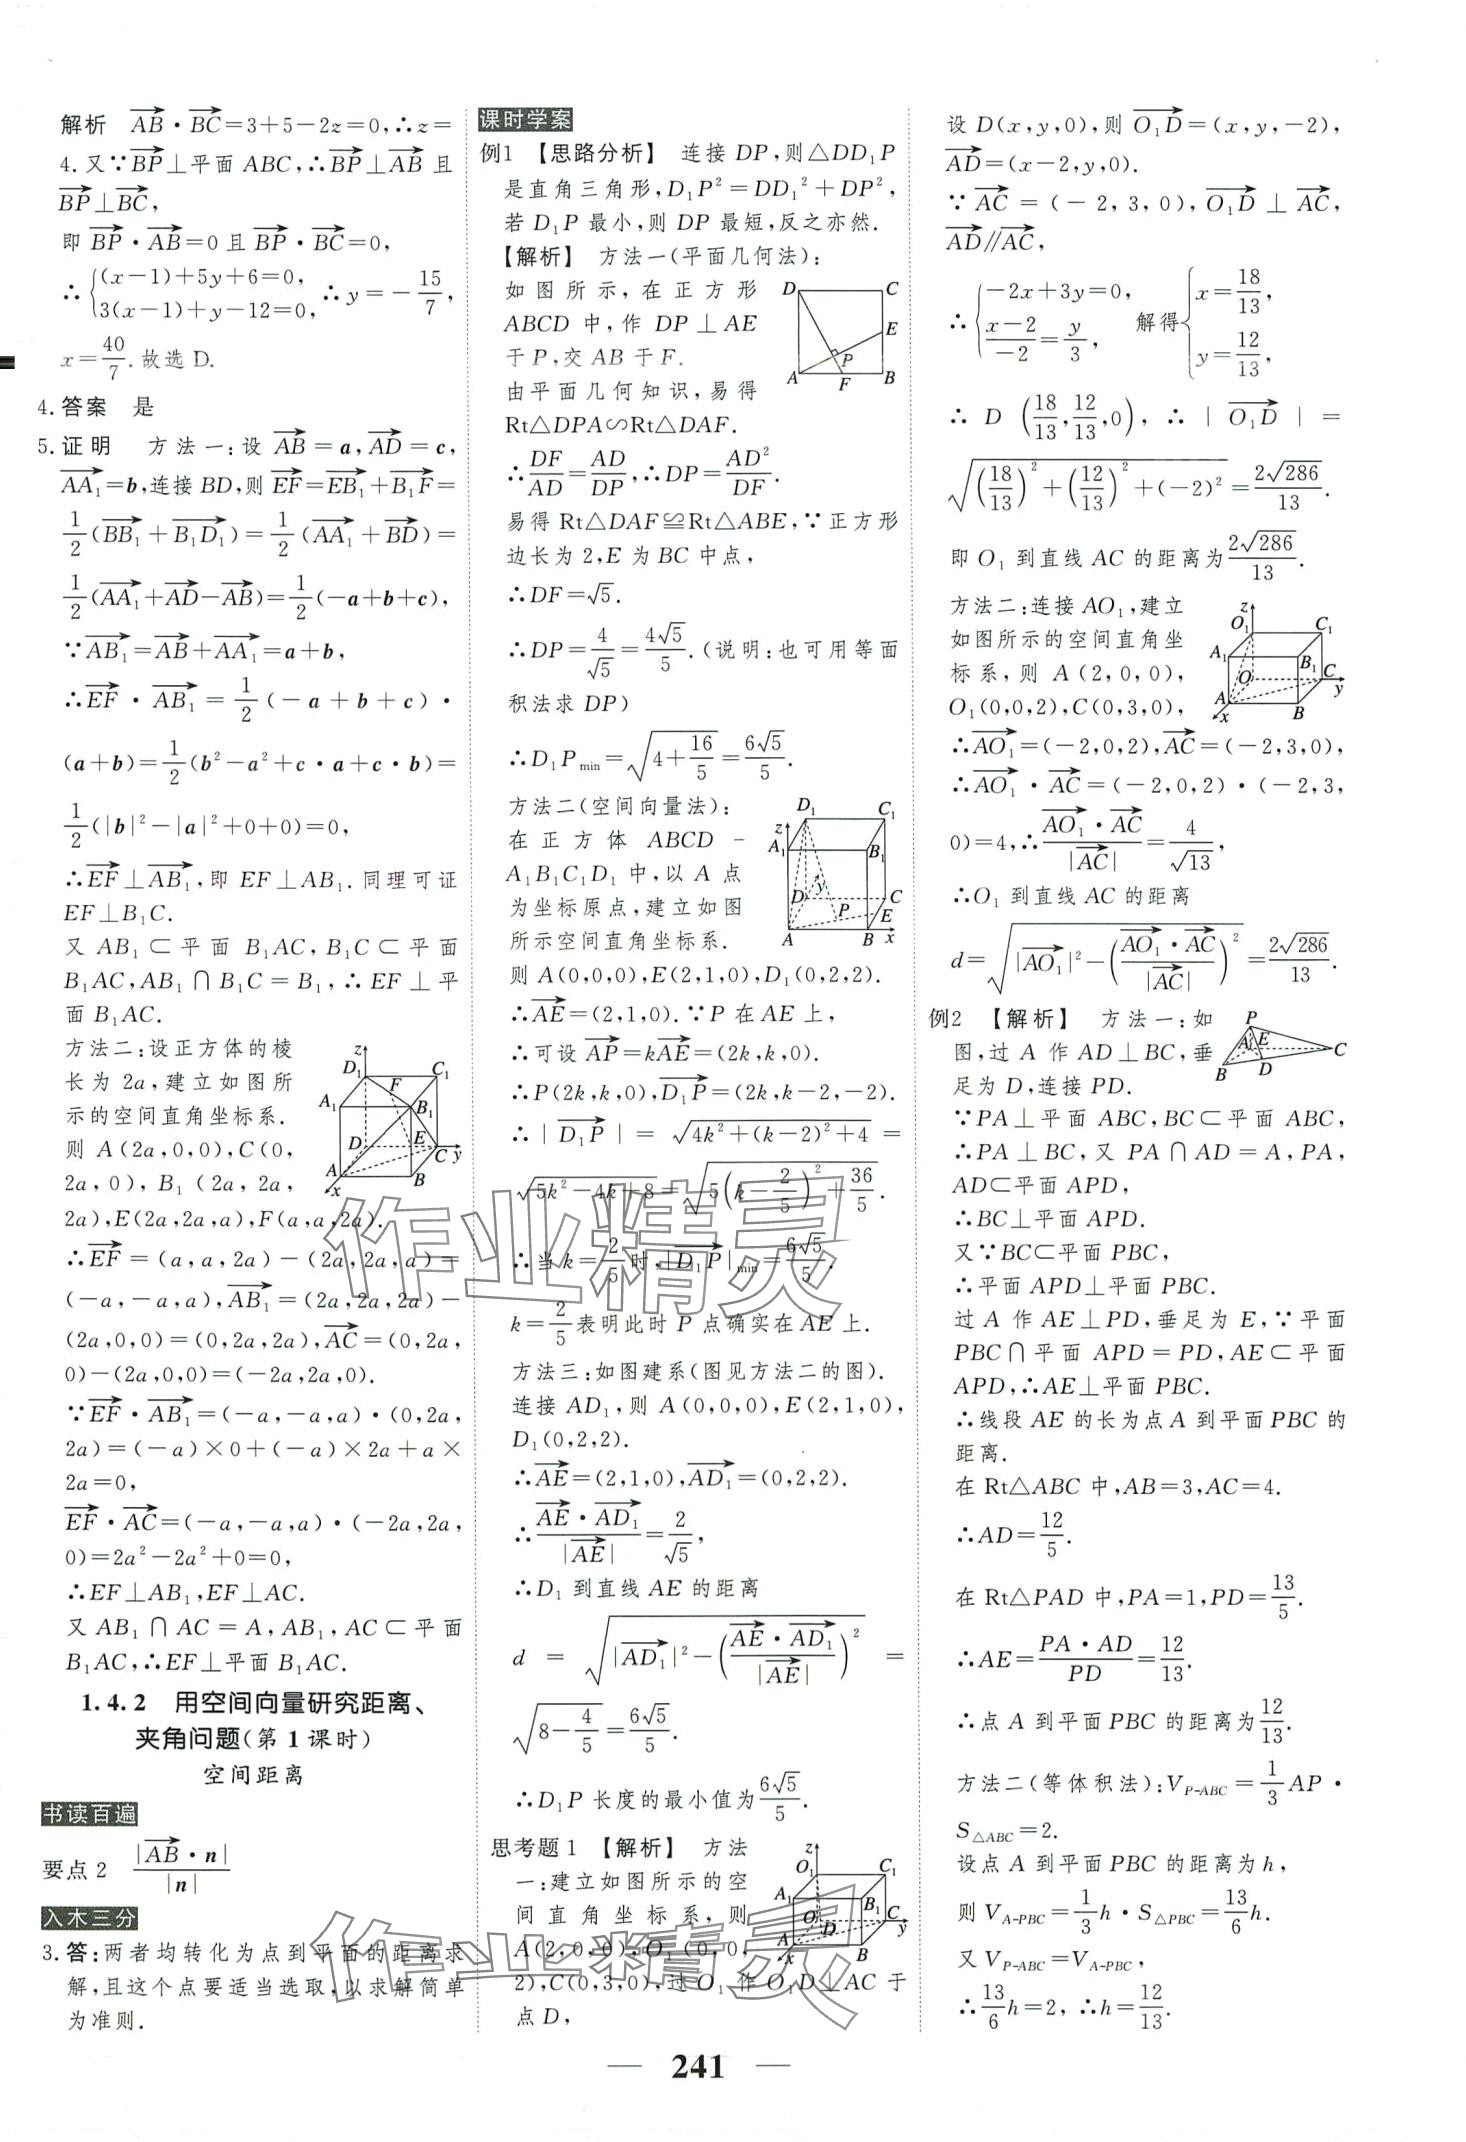 解析 $\overrightarrow{AB}·\overrightarrow{BC}$=3+5-2z=0,∴z=
4.又∵$\overrightarrow{BP}$⊥平面 ABC,∴$\overrightarrow{BP}$⊥$\overrightarrow{AB}$ 且
$\overrightarrow{BP}$⊥$\overrightarrow{BC}$,
即 $\overrightarrow{BP}·\overrightarrow{AB}$=0 且 $\overrightarrow{BP}·\overrightarrow{BC}$=0,
∴$\begin{cases}(x-1)+5y+6=0,\\3(x-1)+y-12=0,\end{cases}$∴y=$-\frac{15}{7}$,
x=$\frac{40}{7}$.故选 D.
4.答案 是
5.证明 方法一:设 $\overrightarrow{AB}$=a,$\overrightarrow{AD}$=c,
$\overrightarrow{AA_1}$=b,连接 BD,则 $\overrightarrow{EF}$=$\overrightarrow{EB_1}$+$\overrightarrow{B_1F}$=
$\frac{1}{2}(\overrightarrow{BB_1}+\overrightarrow{B_1D_1})=\frac{1}{2}(\overrightarrow{AA_1}+\overrightarrow{BD})=$
$\frac{1}{2}(\overrightarrow{AA_1}+\overrightarrow{AD}-\overrightarrow{AB})=\frac{1}{2}(-a+b+c)$,
∵$\overrightarrow{AB_1}$=$\overrightarrow{AB}$+$\overrightarrow{AA_1}$=a+b,
∴$\overrightarrow{EF}·\overrightarrow{AB_1}=\frac{1}{2}(-a+b+c)·$
$(a+b)=\frac{1}{2}(b^2-a^2+c·a+c·b)=$
$\frac{1}{2}(|b|^2-|a|^2+0+0)=0$,
∴$\overrightarrow{EF}$⊥$\overrightarrow{AB_1}$,即 EF⊥AB₁.同理可证
EF⊥B₁C.
又 AB₁⊂平面 B₁AC,B₁C⊂平面
B₁AC,AB₁∩B₁C=B₁,∴EF⊥平
面 B₁AC.
方法二:设正方体的棱
长为 2a,建立如图所
示的空间直角坐标系.
则 A(2a,0,0),C(0,
2a,0),B₁(2a,2a,
2a),E(2a,2a,a),F(a,a,2a).
z D₁ C₁ F A₁ B₁ D E C y A B x
∴$\overrightarrow{EF}$=(a,a,2a)-(2a,2a,a)=
(-a,-a,a),$\overrightarrow{AB_1}$=(2a,2a,2a)-
(2a,0,0)=(0,2a,2a),$\overrightarrow{AC}$=(0,2a,
0)-(2a,0,0)=(-2a,2a,0).
∵$\overrightarrow{EF}·\overrightarrow{AB_1}$=(-a,-a,a)·(0,2a,
2a)=(-a)×0+(-a)×2a+a×
2a=0,
$\overrightarrow{EF}·\overrightarrow{AC}$=(-a,-a,a)·(-2a,2a,
0)=2a²-2a²+0=0,
∴EF⊥AB₁,EF⊥AC.
又 AB₁∩AC=A,AB₁,AC⊂平面
B₁AC,∴EF⊥平面 B₁AC.
1.4.2 用空间向量研究距离、
夹角问题(第1课时)
空间距离
书读百遍
要点 2 $\frac{|\overrightarrow{AB}·n|}{|n|}$
入木三分
3.答:两者均转化为点到平面的距离求
解,且这个点要适当选取,以求解简单
为准则.
课时学案
例1 【思路分析】 连接 DP,则△DD₁P
是直角三角形,D₁P²=DD₁²+DP²,
若 D₁P 最小,则 DP 最短,反之亦然.
【解析】 方法一(平面几何法):
如图所示,在正方形
ABCD 中,作 DP⊥AE
于 P,交 AB 于 F.
由平面几何知识,易得
D C E P A F B
Rt△DPA∽Rt△DAF.
∴$\frac{DF}{AD}=\frac{AD}{DP}$,∴DP=$\frac{AD^2}{DF}$.
易得 Rt△DAF≌Rt△ABE,∵正方形
边长为 2,E 为 BC 中点,
∴DF=$\sqrt{5}$.
∴DP=$\frac{4}{\sqrt{5}}=\frac{4\sqrt{5}}{5}$.(说明:也可用等面
积法求 DP)
∴$D_1P_{min}=\sqrt{4+\frac{16}{5}}=\frac{6\sqrt{5}}{5}$.
方法二(空间向量法):
在正方体 ABCD-
A₁B₁C₁D₁ 中,以 A 点
为坐标原点,建立如图
所示空间直角坐标系.
D₁ C₁ z A₁ B₁ y D C P E A B x
则 A(0,0,0),E(2,1,0),D₁(0,2,2).
∴$\overrightarrow{AE}$=(2,1,0).∵P 在 AE 上,
∴可设 $\overrightarrow{AP}$=k$\overrightarrow{AE}$=(2k,k,0).
∴P(2k,k,0),$\overrightarrow{D_1P}$=(2k,k-2,-2).
∴$|\overrightarrow{D_1P}|=\sqrt{4k^2+(k-2)^2+4}=$
$\sqrt{5k^2-4k+8}=\sqrt{5\left(k-\frac{2}{5}\right)^2+\frac{36}{5}}$.
∴当 k=$\frac{2}{5}$时,$|\overrightarrow{D_1P}|_{min}=\frac{6\sqrt{5}}{5}$.
k=$\frac{2}{5}$表明此时 P 点确实在 AE 上.
方法三:如图建系(图见方法二的图).
连接 AD₁,则 A(0,0,0),E(2,1,0),
D₁(0,2,2).
∴$\overrightarrow{AE}$=(2,1,0),$\overrightarrow{AD_1}$=(0,2,2).
∴$\frac{\overrightarrow{AE}·\overrightarrow{AD_1}}{|\overrightarrow{AE}|}=\frac{2}{\sqrt{5}}$,
∴D₁ 到直线 AE 的距离
$d=\sqrt{|\overrightarrow{AD_1}|^2-\left(\frac{\overrightarrow{AE}·\overrightarrow{AD_1}}{|\overrightarrow{AE}|}\right)^2}=$
$\sqrt{8-\frac{4}{5}}=\frac{6\sqrt{5}}{5}$.
∴D₁P 长度的最小值为$\frac{6\sqrt{5}}{5}$.
思考题1 【解析】 方法
一:建立如图所示的空
间直角坐标系,则
A(2,0,0),O₁(0,0,
2),C(0,3,0),过 O₁ 作 O₁D⊥AC 于
点 D,
z O₁ C₁ A₁ B₁ O D C y A B x
设 D(x,y,0),则 $\overrightarrow{O_1D}$=(x,y,-2),
$\overrightarrow{AD}$=(x-2,y,0).
∵$\overrightarrow{AC}$=(-2,3,0),$\overrightarrow{O_1D}$⊥$\overrightarrow{AC}$,
$\overrightarrow{AD}$∥$\overrightarrow{AC}$,
∴$\begin{cases}-2x+3y=0,\\\frac{x-2}{-2}=\frac{y}{3},\end{cases}$解得$\begin{cases}x=\frac{18}{13},\\y=\frac{12}{13},\end{cases}$
∴D$\left(\frac{18}{13},\frac{12}{13},0\right)$,∴$|\overrightarrow{O_1D}|=$
$\sqrt{\left(\frac{18}{13}\right)^2+\left(\frac{12}{13}\right)^2+(-2)^2}=\frac{2\sqrt{286}}{13}$.
即 O₁ 到直线 AC 的距离为$\frac{2\sqrt{286}}{13}$.
方法二:连接 AO₁,建立
如图所示的空间直角坐
标系,则 A(2,0,0),
O₁(0,0,2),C(0,3,0),
z O₁ C₁ A₁ B₁ O C y A B x
∴$\overrightarrow{AO_1}$=(-2,0,2),$\overrightarrow{AC}$=(-2,3,0),
∴$\overrightarrow{AO_1}·\overrightarrow{AC}$=(-2,0,2)·(-2,3,
0)=4,∴$\frac{\overrightarrow{AO_1}·\overrightarrow{AC}}{|\overrightarrow{AC}|}=\frac{4}{\sqrt{13}}$,
∴O₁ 到直线 AC 的距离
$d=\sqrt{|\overrightarrow{AO_1}|^2-\left(\frac{\overrightarrow{AO_1}·\overrightarrow{AC}}{|\overrightarrow{AC}|}\right)^2}=\frac{2\sqrt{286}}{13}$.
例2 【解析】 方法一:如
图,过 A 作 AD⊥BC,垂
足为 D,连接 PD.
P A E C B D
∵PA⊥平面 ABC,BC⊂平面 ABC,
∴PA⊥BC,又 PA∩AD=A,PA,
AD⊂平面 APD,
∴BC⊥平面 APD.
又∵BC⊂平面 PBC,
∴平面 APD⊥平面 PBC.
过 A 作 AE⊥PD,垂足为 E,∵平面
PBC∩平面 APD=PD,AE⊂平面
APD,∴AE⊥平面 PBC.
∴线段 AE 的长为点 A 到平面 PBC 的
距离.
在 Rt△ABC 中,AB=3,AC=4.
∴AD=$\frac{12}{5}$.
在 Rt△PAD 中,PA=1,PD=$\frac{13}{5}$.
∴AE=$\frac{PA·AD}{PD}=\frac{12}{13}$.
∴点 A 到平面 PBC 的距离为$\frac{12}{13}$.
方法二(等体积法):$V_{P-ABC}=\frac{1}{3}AP·$
$S_{△ABC}=2$.
设点 A 到平面 PBC 的距离为 h,
则 $V_{A-PBC}=\frac{1}{3}h·S_{△PBC}=\frac{13}{6}h$.
又 $V_{P-ABC}=V_{A-PBC}$,
∴$\frac{13}{6}h=2$,∴$h=\frac{12}{13}$.
作业精灵
作业精灵
— 241 —